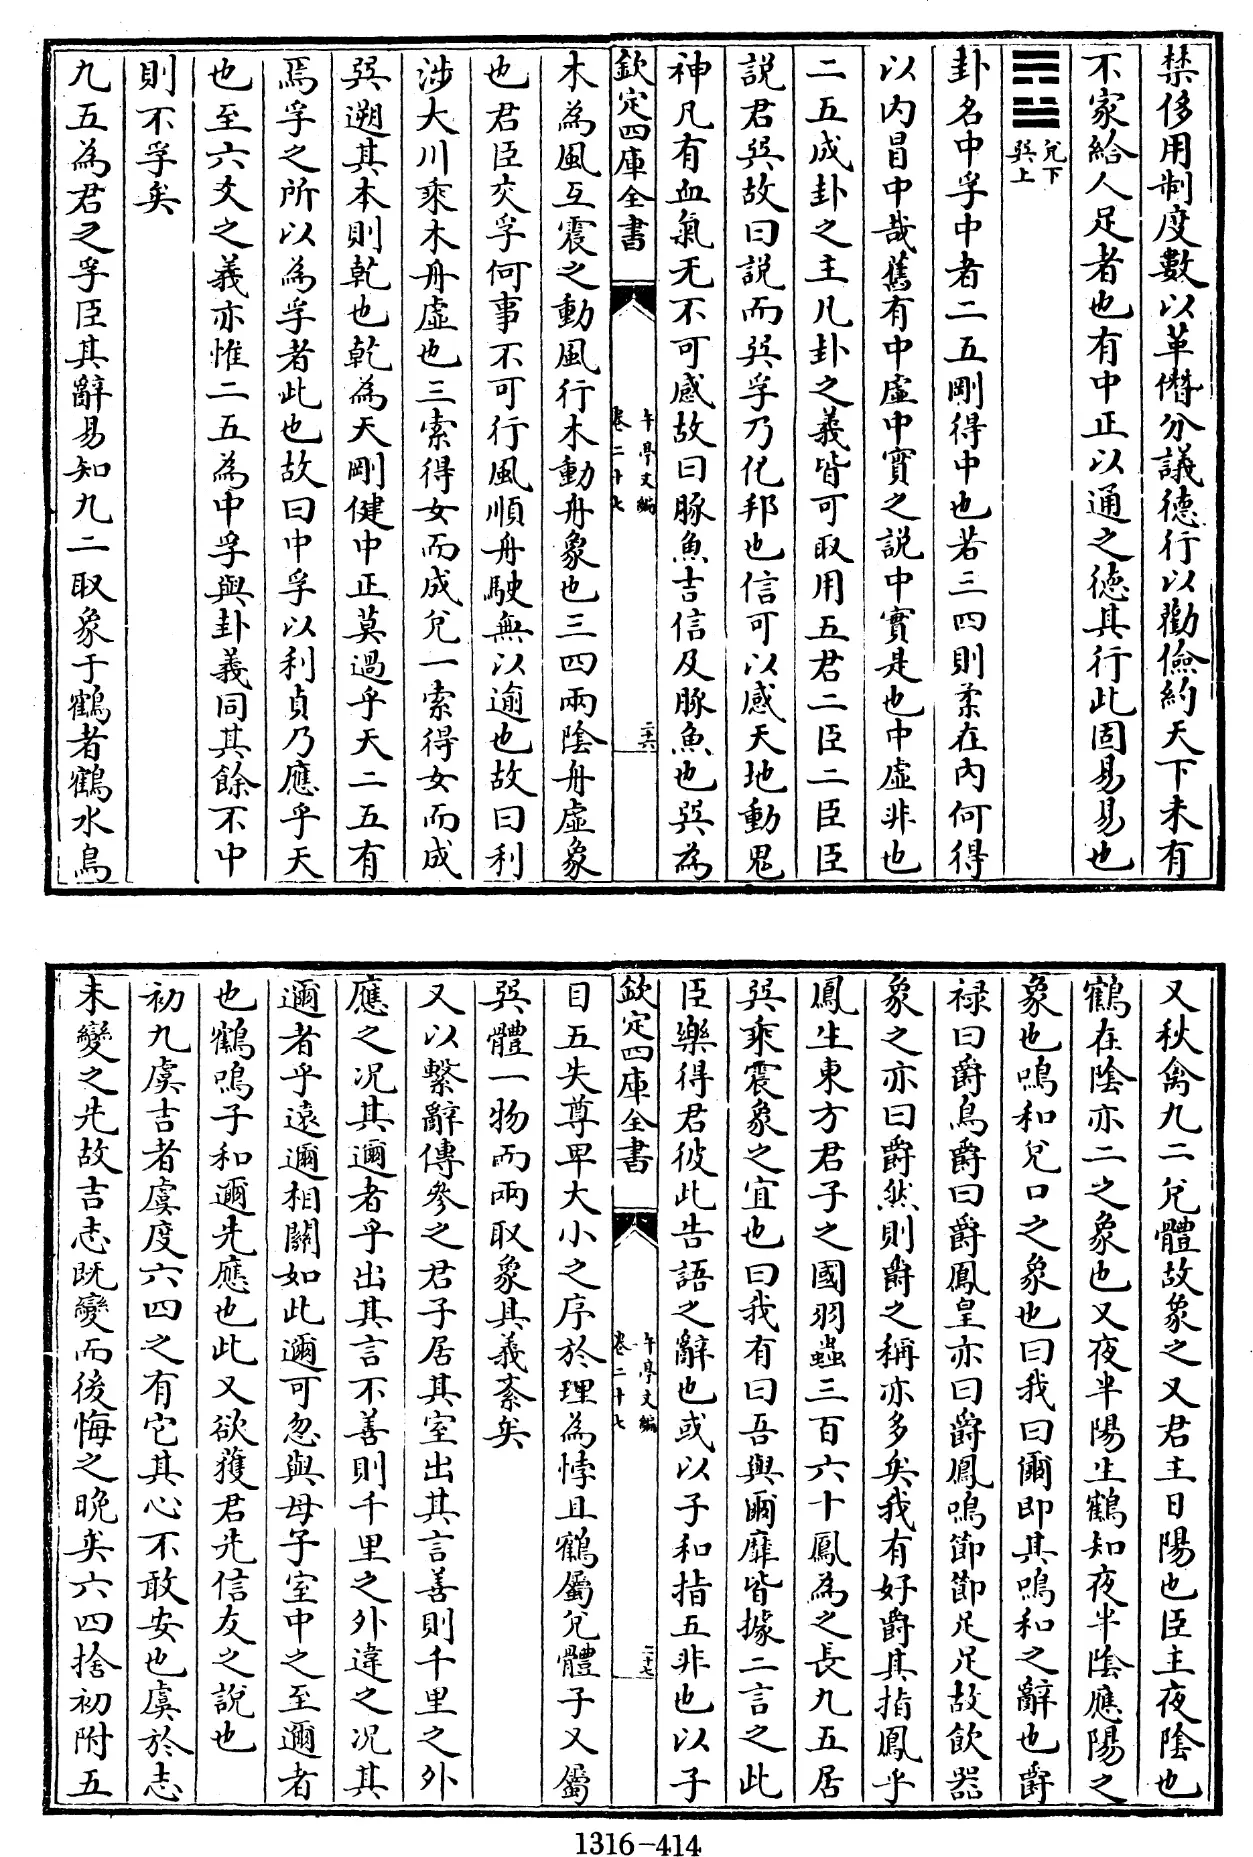 禁侈用制度數以革僭分議德行以勸儉約天下未有
不家給人足者也有中正以通之德其行此固易易也
䷼兌下巽上
卦名中孚中者二五剛得中也若三四則柔在內何得
以內冒中哉舊有中虛中實之說中實是也中虛非也
二五成卦之主凡卦之義皆可取用五君二臣二臣臣
說君巽故曰說而巽孚乃化邦也信可以感天地動鬼
神凡有血氣无不可感故曰豚魚吉信及豚魚也巽為
欽定四庫全書
午亭文編
卷二十七
二十六
木為風互震之動風行木動舟象也三四兩陰舟虛象
也君臣交孚何事不可行風順舟駛無以逾也故曰利
涉大川乘木舟虛也三索得女而成兌一索得女而成
巽遡其本則乾也乾為天剛健中正莫過乎天二五有
焉孚之所以為孚者此也故曰中孚以利貞乃應乎天
也至六爻之義亦惟二五為中孚與卦義同其餘不中
則不孚矣
九五為君之孚臣其辭易知九二取象于鶴者鶴水鳥
又秋禽九二兌體故象之又君主日陽也臣主夜陰也
鶴在陰亦二之象也又夜半陽生鶴知夜半陰應陽之
象也鳴和兌口之象也曰我曰爾即其鳴和之辭也爵
祿曰爵鳥爵曰爵鳳皇亦曰爵鳳鳴節節足足故飲器
象之亦曰爵然則爵之稱亦多矣我有好爵其指鳳乎
鳳生東方君子之國羽蟲三百六十鳳為之長九五居
巽乘震象之宜也曰我有曰吾與爾靡皆據二言之此
臣樂得君彼此告語之辭也或以子和指五非也以子
欽定四庫全書
午亭文編
卷二十七
二十七
目五失尊卑大小之序於理為悖且鶴屬兌體子又屬
巽體一物而兩取象其義紊矣
又以繫辭傳參之君子居其室出其言善則千里之外
應之况其邇者乎出其言不善則千里之外違之况其
邇者乎遠邇相關如此邇可忽與母子室中之至邇者
也鶴鳴子和邇先應也此又欲獲君先信友之說也
初九虞吉者虞度六四之有它其心不敢安也虞於志
未變之先故吉志既變而後悔之晚矣六四捨初附五
1316-414